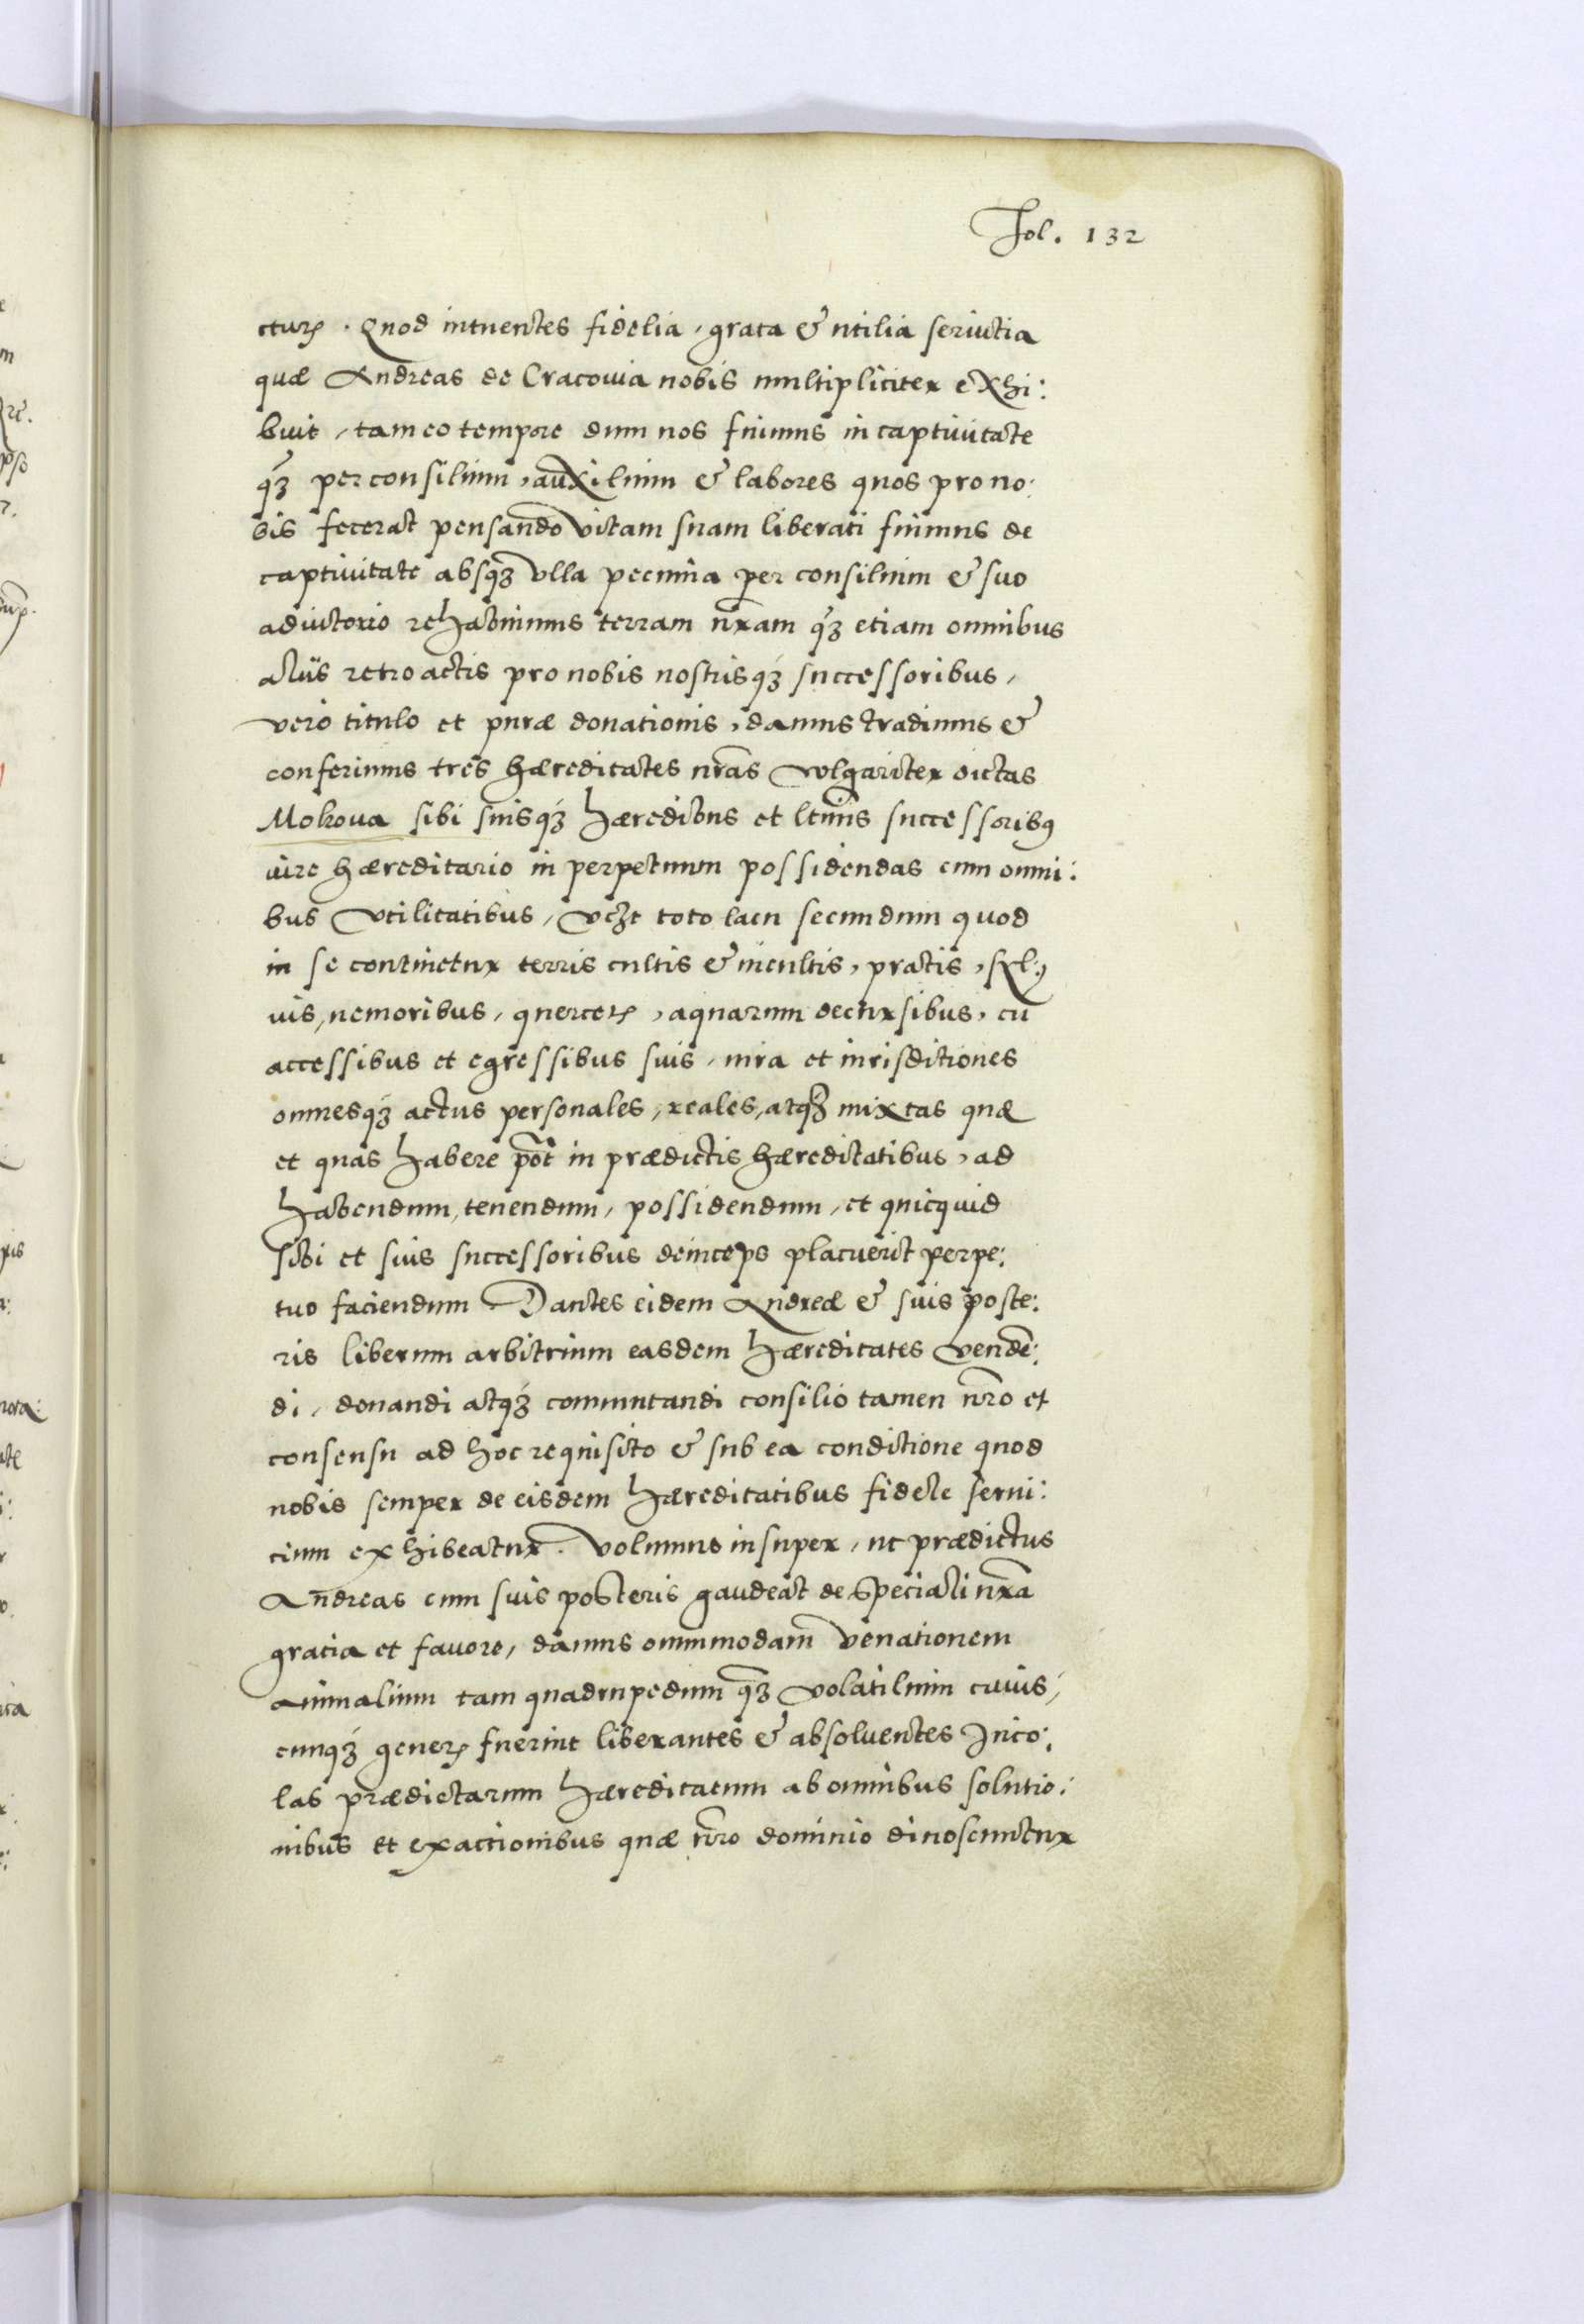 Fol. 132
cturꝭ . Quod intuentes fidelia, grata & utilia seruitia
quæ Andreas de Cracouia nobis multipliciter exhi:
buit, tam eo tempore dum nos fuimus in captiuitate
qꝫ per consilium, auxilium & labores quos pro no:
bis fecerat pensando vitam suam liberati fuimus de
captiuitate absqꝫ vlla pecunia per consilium & suo
adiutorio rehabuimus terram nr̄am qꝫ etiam omnibus
alijs retroactis pro nobis nostrisqꝫ successoribus,
vero titulo et puræ donationis, damus tradimus &
conferimus tres hæreditates nr̄as vulgariter dictas
Mokoua sibi suisqꝫ hæredibus et ltīmis successoribꝰ
iure hæreditario in perpetuum possidendas cum omni:
bus vtilitatibus, vꝫt toto lacu secundum quod
in se continetur terris cultis & incultis, pratis, syl:
uis, nemoribus, quercetꝭ, aquarum decursibus, cū
accessibus et egressibus suis, iura et iurisditiones
omnesqꝫ actus personales, reales, atqꝫ mixtas quæ
et quas habere pōt in prædictis hæreditatibus, ad
habendum, tenendum, possidendum, et quicquid
sibi et suis successoribus deinceps placuerit perpe:
tuo faciendum Dantes eidem Andreæ & suis poste:
ris liberum arbitrium easdem hæreditates vende:
di, donandi atqꝫ commutandi consilio tamen nr̄o et
consensu ad hoc requisito & sub ea conditione quod
nobis semper de eisdem hæreditatibus fidele serui:
tium exhibeatur. Volumus insuper, ut prædictus
Andreas cum suis posteris gaudeat de speciali nr̄a
gratia et fauore, damus ommimodam venationem
animalium tam quadrupedum qꝫ volatilium cuius,
cunqꝫ generꝭ fuerint liberantes & absoluentes Inco:
las prædictarum hæreditatum ab omnibus solutio:
nibus et exactionibus quæ nr̄o dominio dinoscuntur